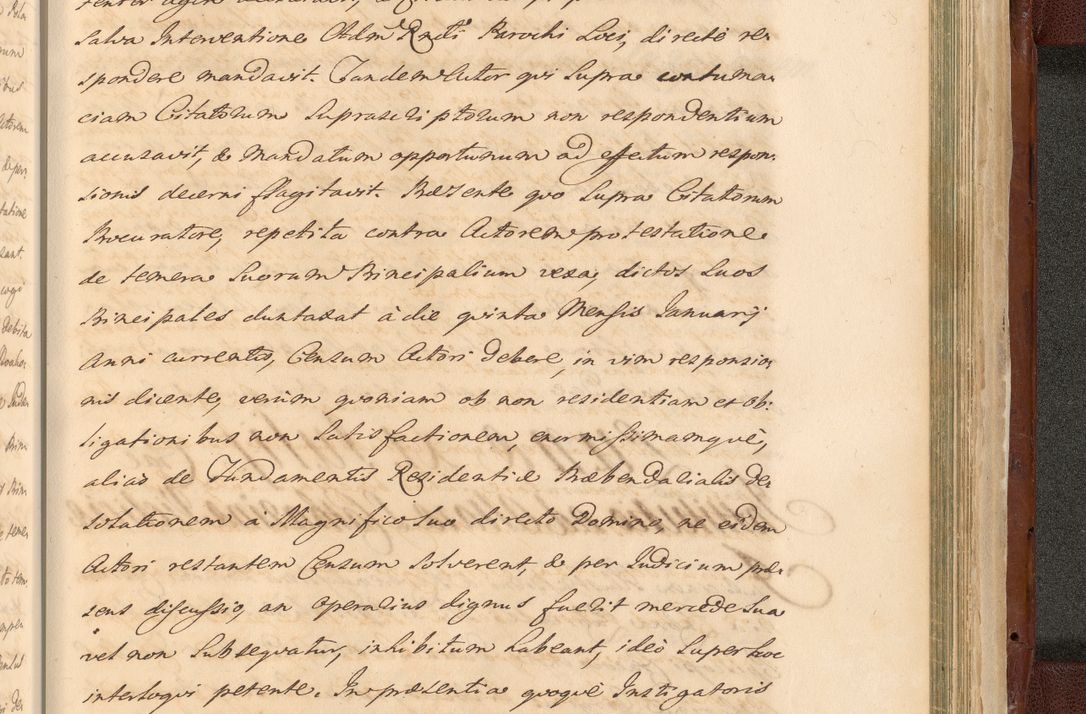 salva Interventione Adm Rndi Parochi Loci, directe re
spondere mandavit. Tandem Actor qui supra contuma
ciam Citatorum suprascriptorum non respondentium
accusavit, & mandatum opportunum ad effectum respon
sionis decerni flagitavit. Præsente quo supra Citatorum
Procuratore, repetita contra Actorem protestatione
de temera suorum Principalium vexa, dictos suos
Principales duntaxat à die quinta Mensis Januarij
Anni currentis, Censum Actori debere, in vim responsio
nis dicente, verùm quoniam ob non residentiam et ob:
ligationibus non satisfactionem, enormissimamquè,
aliàs de Fundamentis Residentiæ Præbendalialis de
solationem à Magnifico suo directo Domino, ne eidem
Actori restantem Censum solverent, & per Judicium præ
sens discussio, an operarius dignus fuerit mercede sua
vel non subsequatur, inhibitum habeant, ideò super hoc
interloqui petente. In præsentia quoquè Instigatoris